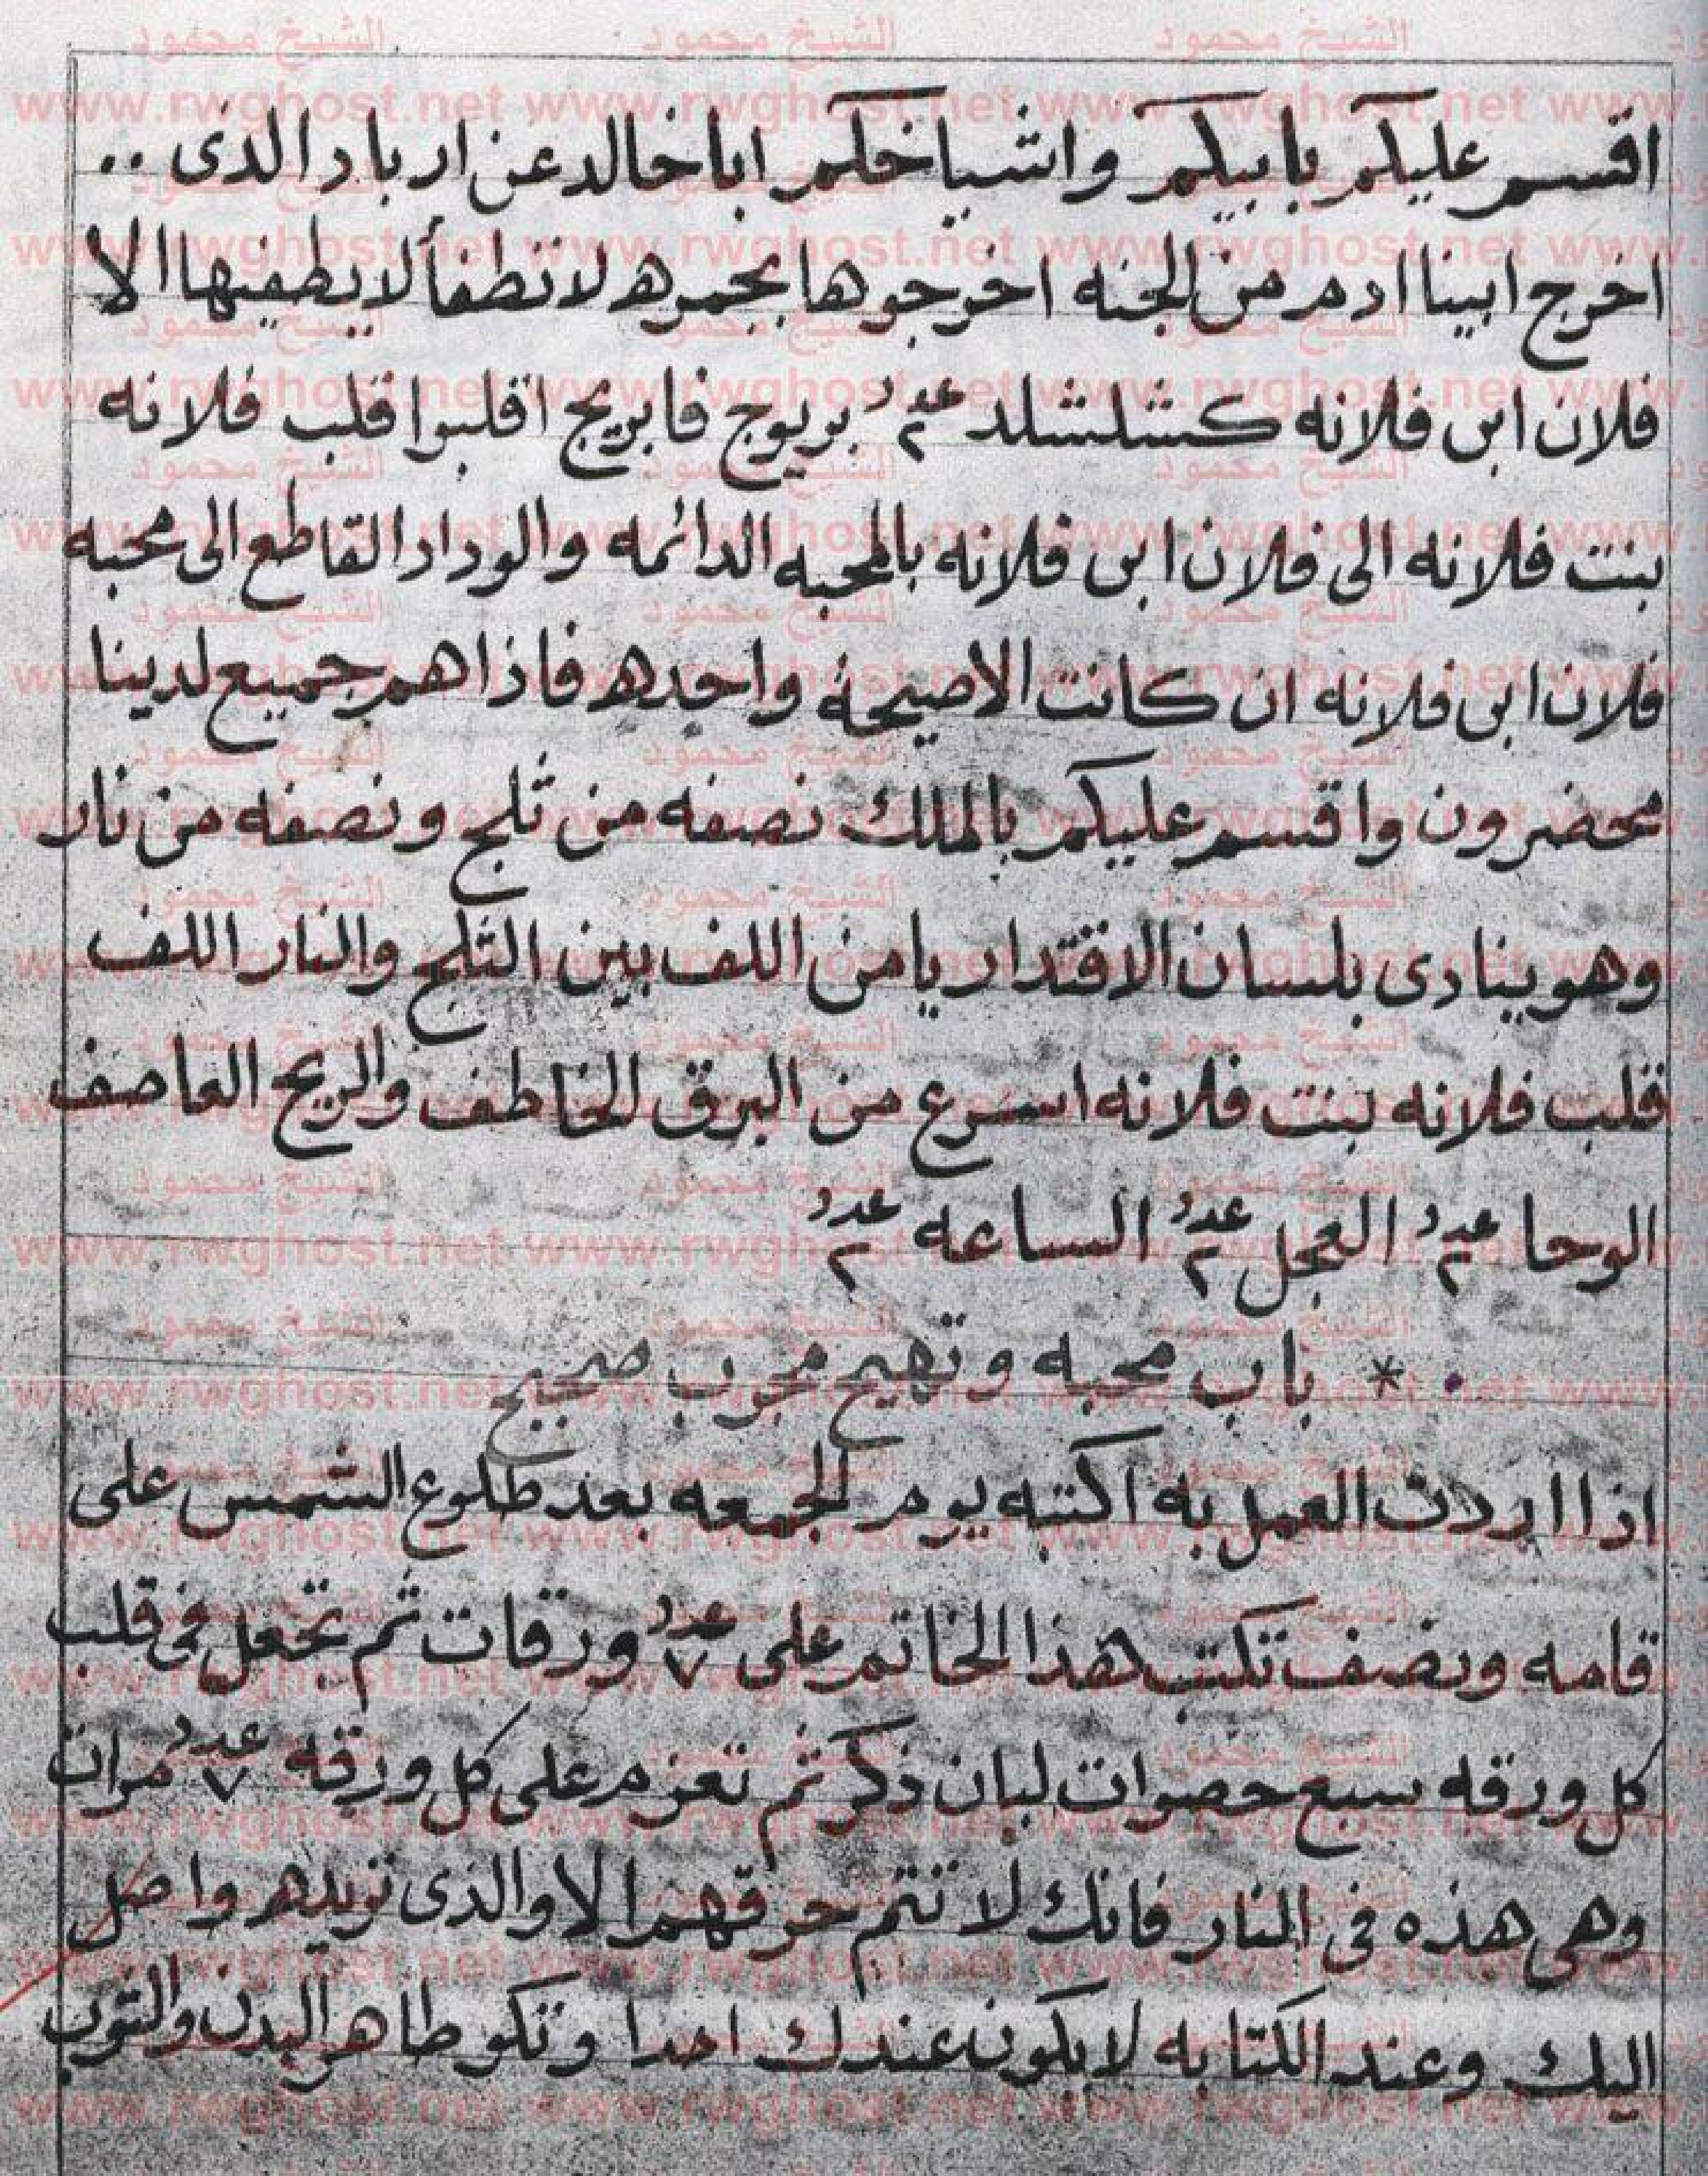 اقسم عليكم بابيكم واشياخكم اباخالد عن ارباد الذى ..
اخرج ابينا ادم من الجنه اخرجوها بجمره لا تطفأ لا يطفيها الا
فلان ابن فلانه كشلشلد عدد ٢ بريوج فابريج اقلبوا قلب فلانه
بنت فلانه الى فلان ابن فلانه بالمحبه الدائمه والوداد القاطع الى محبه
فلان ابن فلانه ان كانت الاصيحة واحده فاذا هم جميع لدينا
محضرون واقسم عليكم بالملك نصفه من ثلج ونصفه من نار
وهو ينادى بلسان الاقتدار يا من اللف بين الثلج والنار اللف
قلب فلانه بنت فلانه اسرع من البرق الخاطف والريح العاصف
الوحا عدد ٢ العجل عدد ٢ الساعه عدد ٢
* باب محبه وتهيج مجرب صحيح
اذا اردت العمل به اكتبه يوم الجمعه بعد طلوع الشمس على
قامه ونصف تكتب هذا الخاتم على عدد ٧ ورقات ثم تجعل فى قلب
كل ورقه سبع حصوات لبان ذكر ثم تعزم على كل ورقه عدد ٧ مرات
وهى هذه فى النار فانك لا تتم حرقهم الا والذى تريده واصل
اليك وعند الكتابه لا يكون عندك احدا وتكو طاهر البدن والثوب
الشيخ محمود
www.rwghost.net